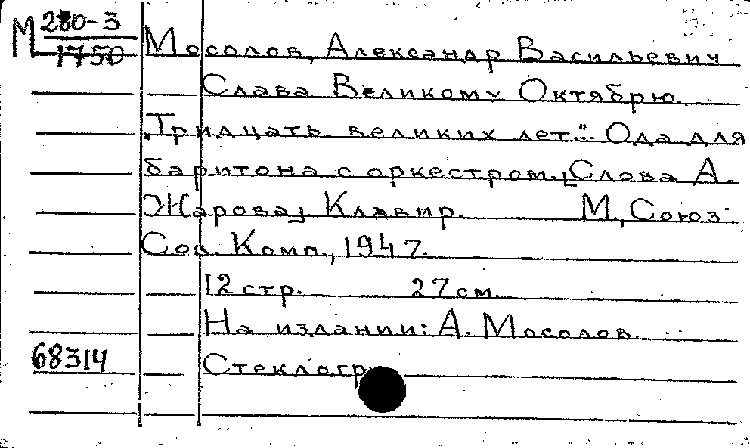 М 280-3
1750 Мосолов, Александр Васильевич
Слава Великому Октябрю.
„Тридцать великих лет". Ода для
баритона с оркестром. [Слова А.
Жарова] Клавир. М., Союз
Сов. Комп., 1947.
12 стр. 27 см
На издании: А. Мосолов
68314 Стеклогр.